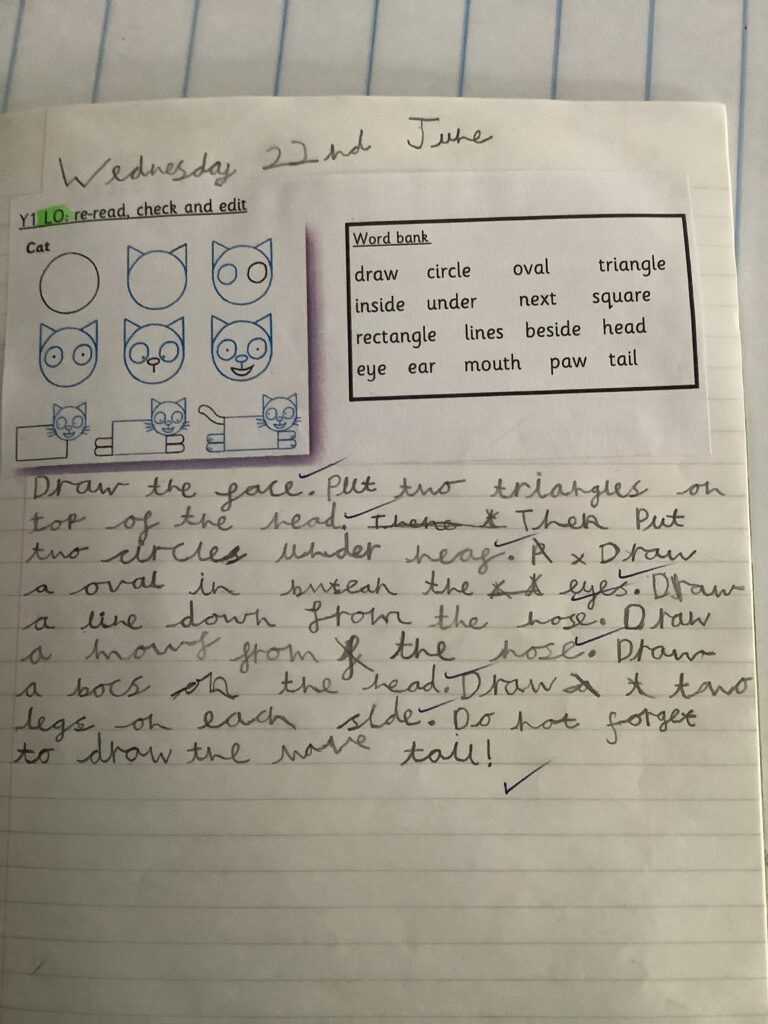 Wednesday 22nd June
Y1 LO: re-read, check and edit
Cat
Word bank
draw circle oval triangle
inside under next square
rectangle lines beside head
eye ear mouth paw tail
Draw the face. Put two triangles on
top of the head. Then Put
two circles under heag. Draw
a oval in buteah the eyes. Draw
a line down from the nose. Draw
a mowf from the nose. Draw
a bocs on the head. Draw two
legs on each side. Do not forget
to draw the tail!